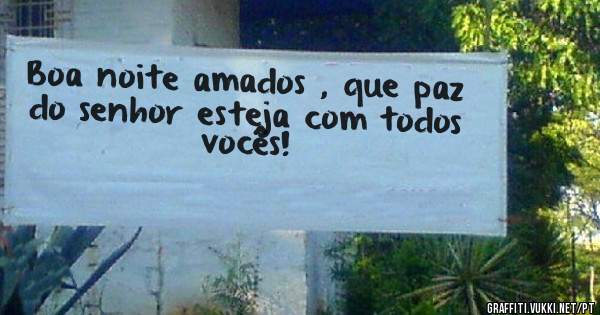 Boa noite amados , que paz
do senhor esteja com todos
vocês!
GRAFFITI.VUKKI.NET/PT